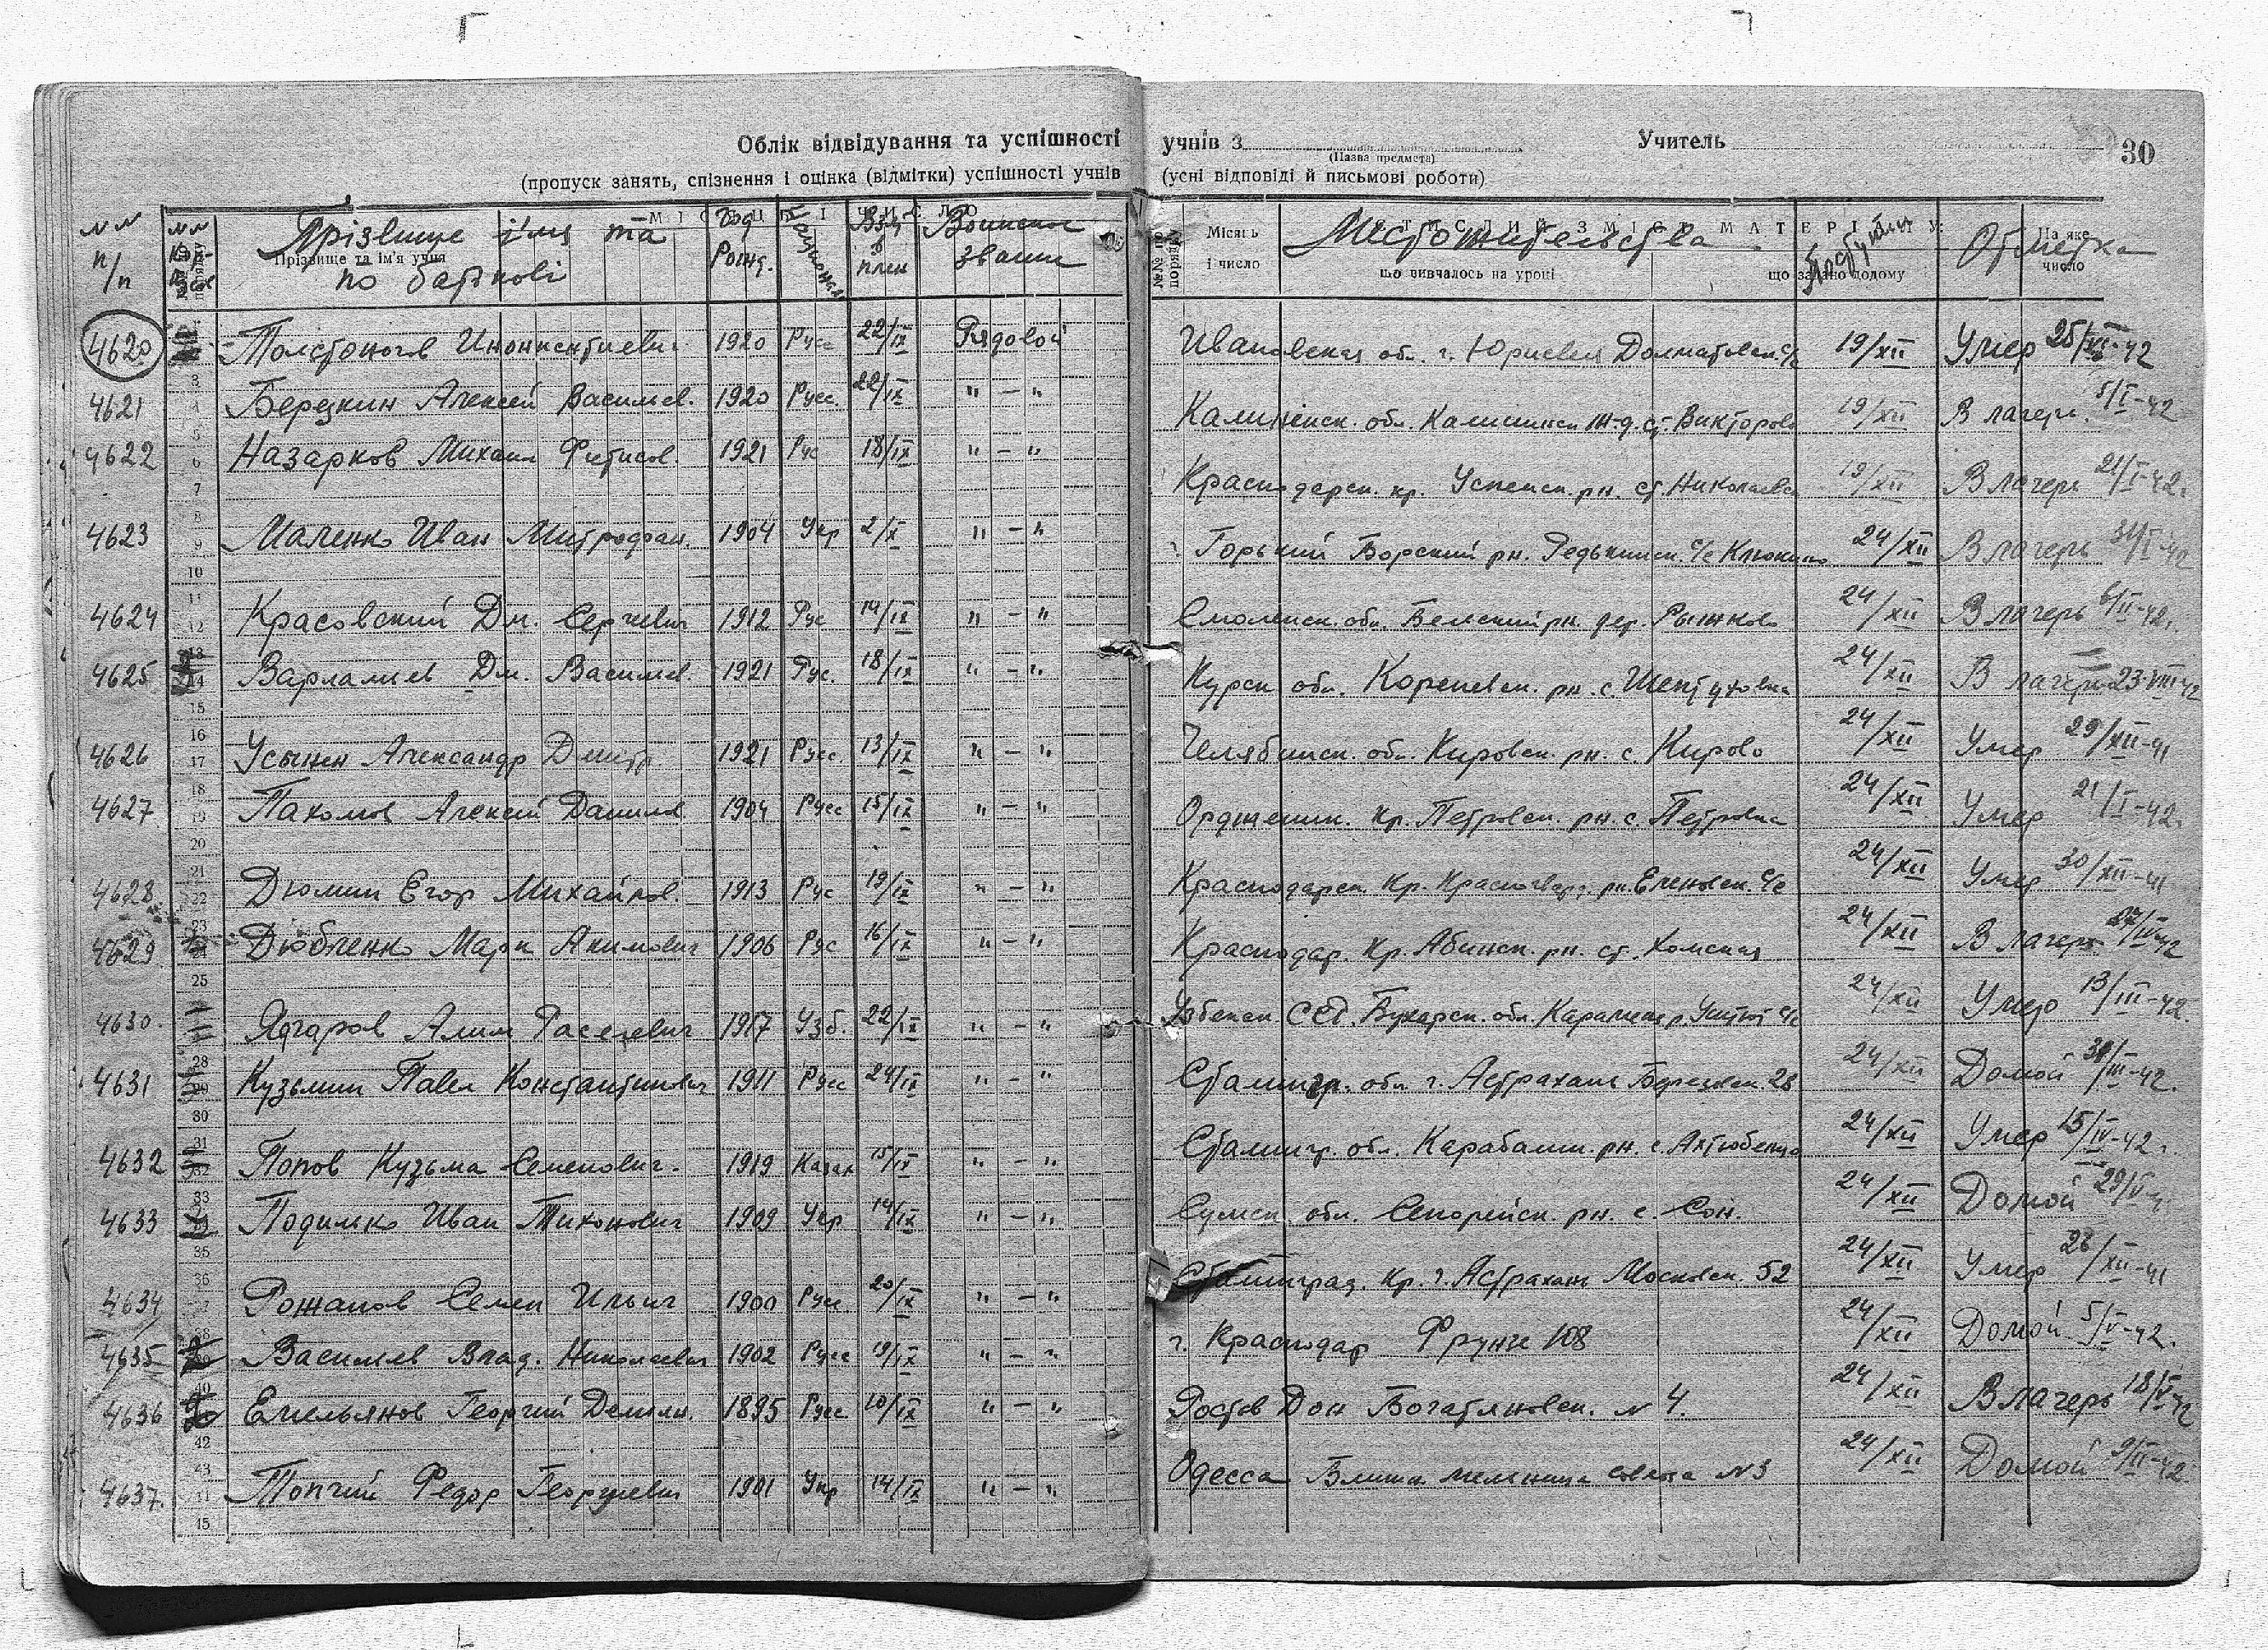 Облік відвідування та успішності учнів з Учитель 30
(Назва предмета)
(пропуск занять, спізнення і оцінка (відмітки) успішності учнів (усні відповіді й письмові роботи)
№№ п/п Прізвище і'мя та по батькові Год Рожд. Взят в плен Воинское звание Местожительства Поступил Отметка
Прізвище та ім'я учня Місяць і число що вивчалось на уроці що задано додому На яке число
4620 Толстоногов Инонкентиевич 1920 Русс 22/IX Рядовой Ивановская обл. г. Юрьевец Долматовск. с/с 19/XII Умер 25/XII-42
4621 Березкин Алексей Васильев. 1920 Русс. 22/IX "-" Калининск. обл. Калининск ж-д. ст. Викторово 19/XII В лагерь 5/I-42
4622 Назарков Михаил Фетисов. 1921 Рус 18/IX "-" Краснодарск. кр. Успенск. рн. ст. Николаевск 19/XII В лагерь 21/I-42г.
4623 Маленко Иван Митрофан. 1904 Укр 2/X "-" г. Горький Борский рн. Редькинск. с/с Клюкино 24/XII В лагерь 31/I-42
4624 Красовский Дм. Сергеевич 1912 Рус 19/IX "-" Смоленск. обл. Бельский рн. дер. Рыжково 24/XII В лагерь 6/II-42г.
4625 Варламов Дм. Васильев. 1921 Рус. 18/IX "-" Курск обл. Кореневск. рн. с. Шептуховка 24/XII В лагерь 23-VIII-42
4626 Усынин Александр Дмитр. 1921 Русс. 13/IX "-" Челябинск. обл. Кировск. рн. с. Кирово 24/XII Умер 29/XII-41
4627 Пахомов Алексей Данилов 1904 Русс 15/IX "-" Орджоник. кр. Петровск. рн. с. Петровка 24/XII Умер 21/I-42г.
4628 Дюмин Егор Михайлов. 1913 Рус 19/IX "-" Краснодарск. кр. Красногвард. рн. Еленовск. с/с 24/XII Умер 30/XII-41
4629 Дюбченко Марк Акимович 1906 Рус 16/IX "-" Краснодар. кр. Абинск. рн. ст. Холмская 24/XII В лагерь 27/IV-42
4630. Ядгаров Алим 1917 Узб. 22/IX "-" Узбекск. ССР. Бухарск. обл. 24/XII Умер 13/III-42.
4631 Кузьмин Павел Константинович 1911 Русс 24/IX "-" Сталингр. обл г. Астрахань 28 24/XII Домой 31/III-42.
4632 Попов Кузьма Семенович. 1919 Казах 15/IX "-" Сталингр. обл. Карабалин. рн. с. Ахтюбенка 24/XII Умер 15/IV-42г.
4633 Подилько Иван Тихонович 1909 Укр 14/IX "-" Сумск обл. рн. с. Сон. 24/XII Домой 29/V
4634 Рожанов Семен Ильич 1900 Русс 20/IX "-" Сталинград. кр. г. Астрахань Московск. 52 24/XII Умер 28/XII-41
4635 Васильев Влад. Николаевич 1902 Русс 19/IX "-" г. Краснодар Фрунзе 108 24/XII Домой 5/V-42.
4636 Емельянов Георгий Демьян. 1895 Русс 10/IX "-" Ростов Дон Богатяновск. № 4. 24/XII В лагерь 18/V-42
4637. Топчий Федор Георгиевич 1901 Укр 14/IX "-" Одесса Ближн мельница №3 24/XII Домой 9/II-42